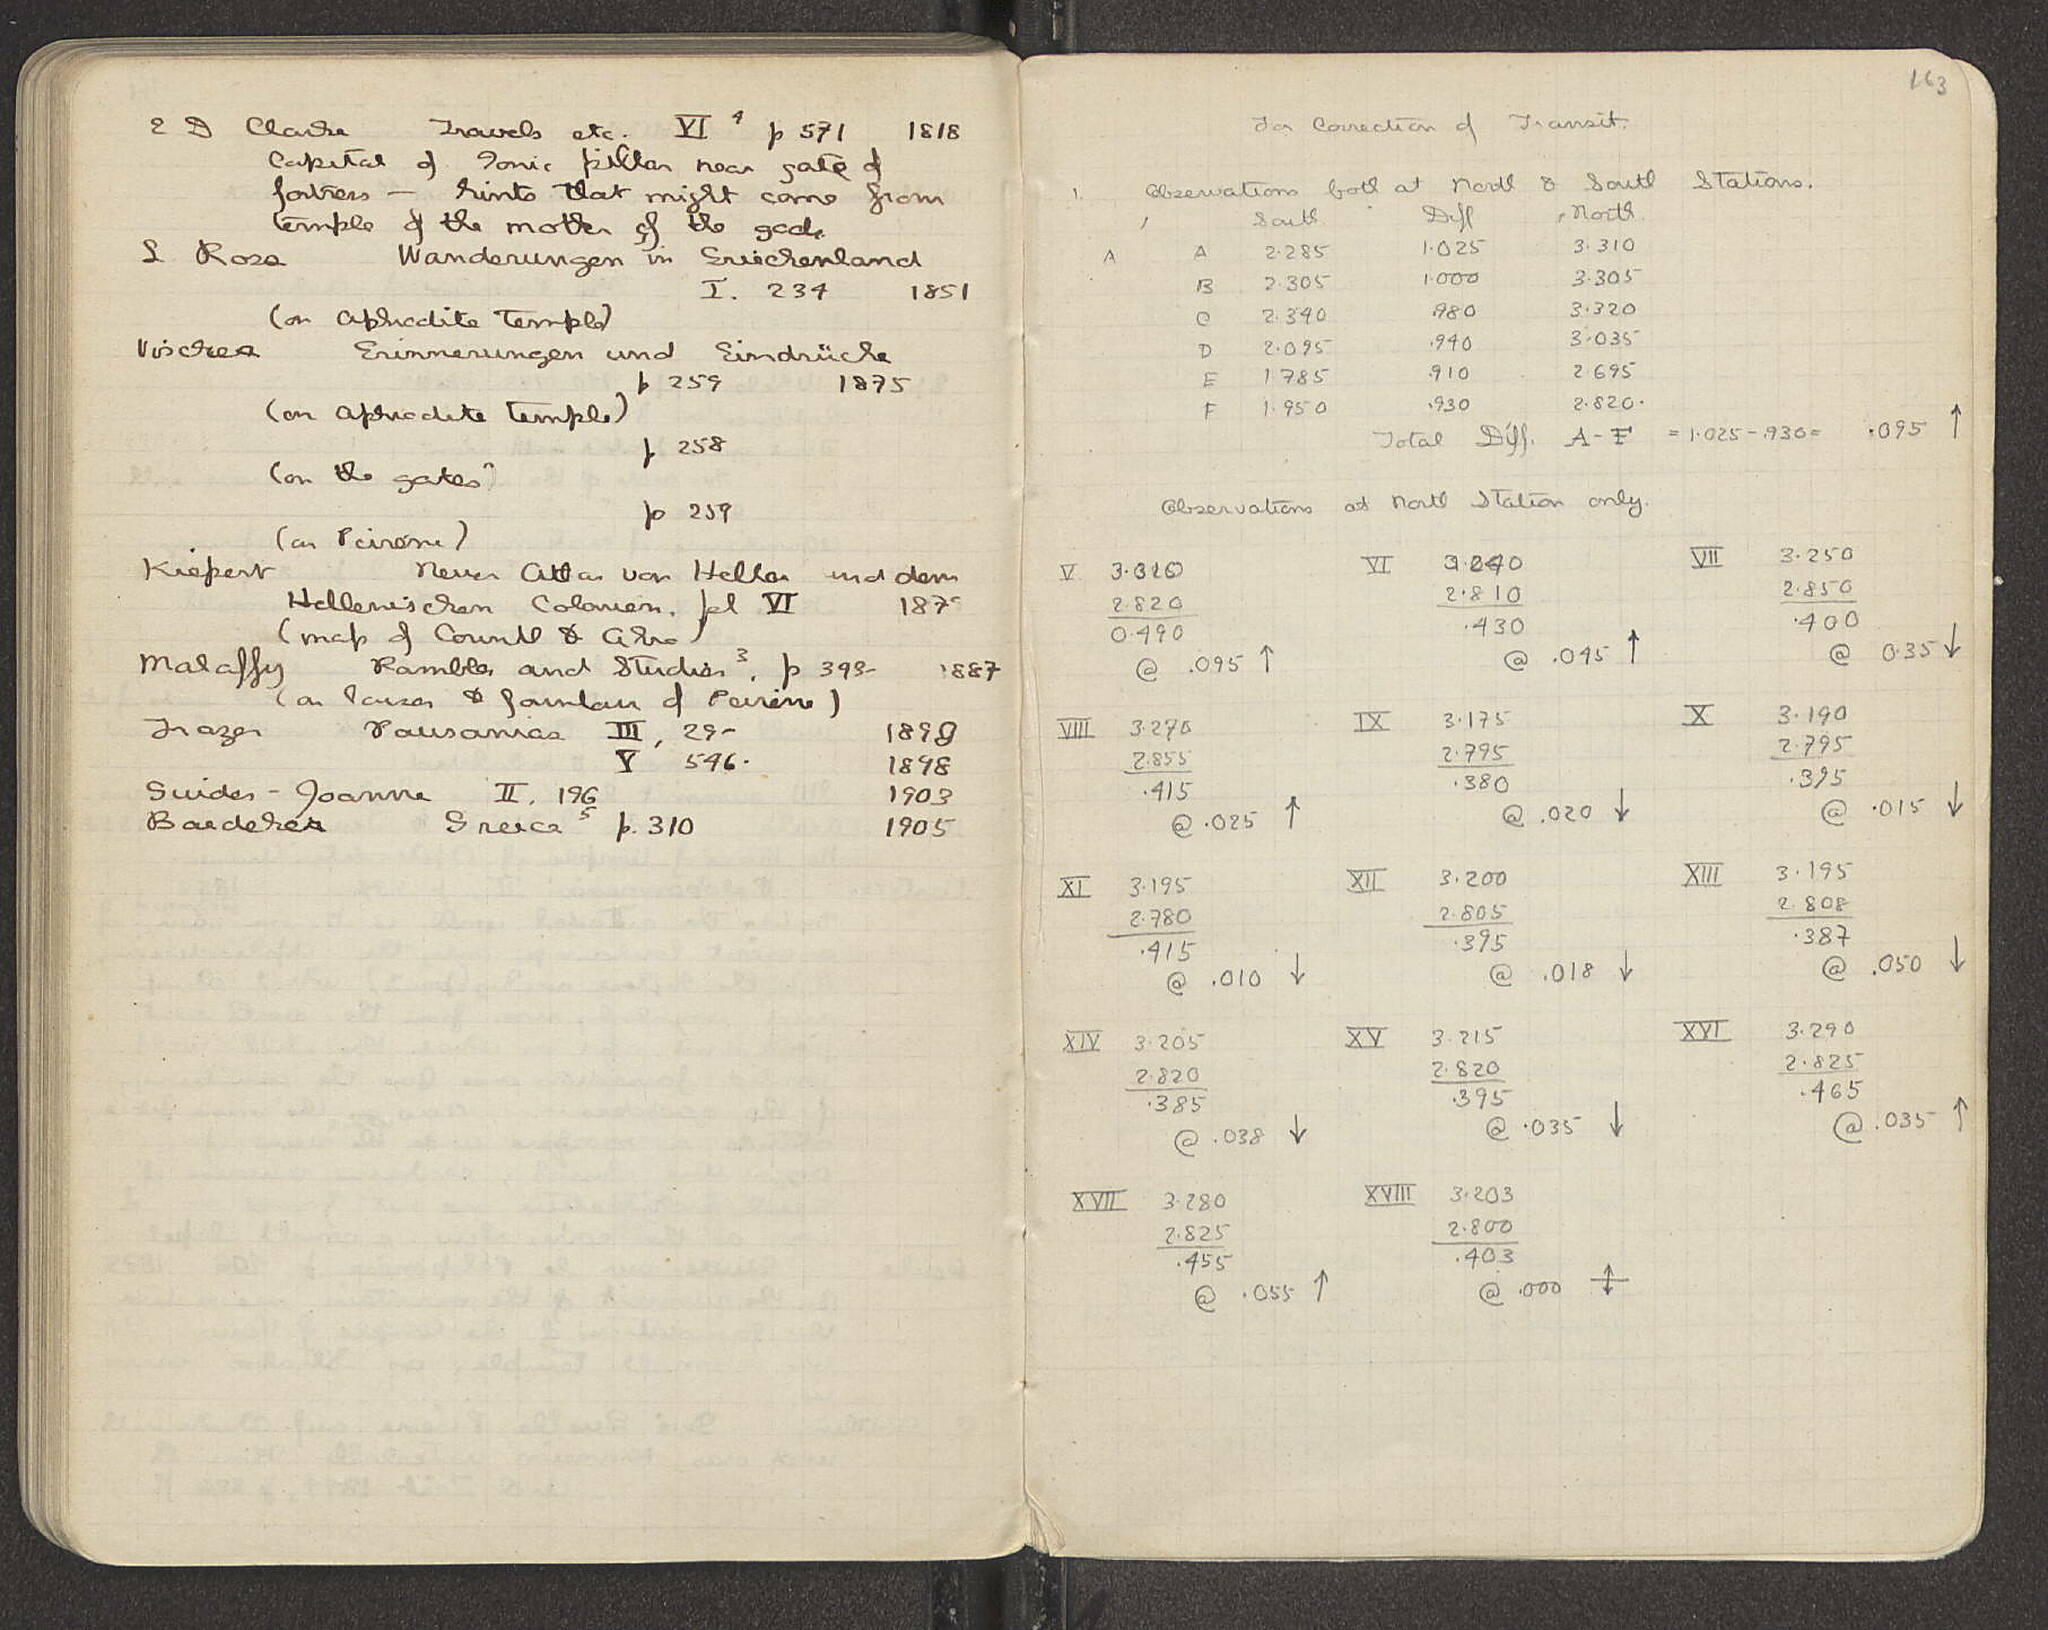 E D Clarke Travels etc. VI⁴ p 571 1818
Capital of Ionic pillar near gate of
fortress — hints that might come from
temple of the mother of the gods.
L Ross Wanderungen in Griechenland
I. 234 1851
(on Aphrodite temple)
Vischer Erinnerungen und Eindrücke
p 259 1875
(on Aphrodite temple)
p 258
(on the gates)
p 259
(on Peirene)
Kiepert Neuer Atlas von Hellas und dem
Hellenischen Colonien. pl VI 187
(map of Corinth & Akro)
Mahaffy Rambles and Studies³. p 343- 1887
(on Pausan & fountain of Peirene)
Frazer Pausanias III, 29- 1898
V 546. 1898
Guides-Joanne II. 196 1903
Baedeker Greece⁵ p. 310 1905
163
For Correction of Transit.
1. Observations both at North & South Stations.
South Diff North
A A 2.285 1.025 3.310
B 2.305 1.000 3.305
C 2.340 .980 3.320
D 2.095 .940 3.035
E 1.785 .910 2.695
F 1.950 .930 2.820.
Total Diff. A-F = 1.025 - .930 = .095 ↑
Observations at North Station only.
V 3.310 VI 3.240 VII 3.250
2.820 2.810 2.850
0.490 .430 .400
@ .095 ↑ @ .045 ↑ @ 0.35 ↓
VIII 3.270 IX 3.175 X 3.190
2.855 2.795 2.795
.415 .380 .395
@ .025 ↑ @ .020 ↓ @ .015 ↓
XI 3.195 XII 3.200 XIII 3.195
2.780 2.805 2.808
.415 .395 .387
@ .010 ↓ @ .018 ↓ @ .050 ↓
XIV 3.205 XV 3.215 XVI 3.290
2.820 2.820 2.825
.385 .395 .465
@ .038 ↓ @ .035 ↓ @ .035 ↑
XVII 3.280 XVIII 3.203
2.825 2.800
.455 .403
@ .055 ↑ @ .000 ↕